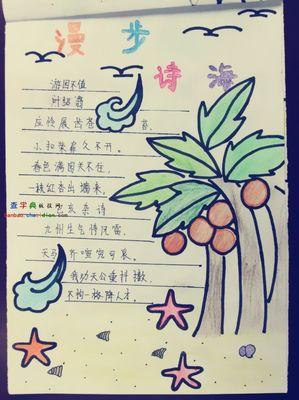 漫步
诗海
游园不值
叶绍翁
应怜屐齿苍苔,
小扣柴扉久不开。
春色满园关不住,
一枝红杏出墙来。
亥杂诗
九州生气恃风雷,
天马齐喑究可哀。
我劝天公重抖擞,
不拘一格降人才。
查字典板报网
banbao.chazidian.com